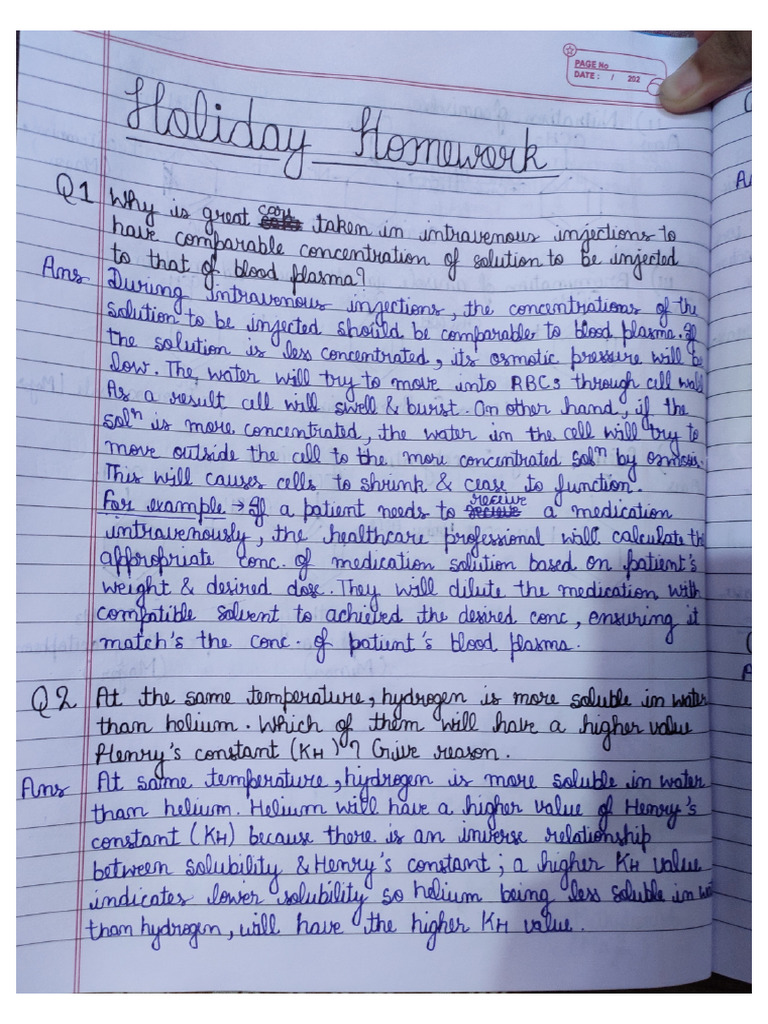 PAGE No
DATE : / 202
Holiday Homework
Q1 Why is great care taken in intravenous injections to
have comparable concentration of solution to be injected
to that of blood plasma?
Ans During intravenous injections, the concentrations of the
solution to be injected should be comparable to blood plasma. If
the solution is less concentrated, its osmotic pressure will be
low. The water will try to move into RBCs through cell wall
As a result cell will swell & burst. On other hand, if the
solⁿ is more concentrated, the water in the cell will try to
move outside the cell to the more concentrated solⁿ by osmosis.
This will causes cells to shrink & cease to function.
For example → If a patient needs to receive a medication
intravenously, the healthcare professional will calculate the
appropriate conc. of medication solution based on patient's
weight & desired dose. They will dilute the medication with
compatible solvent to achieved the desired conc, ensuring it
match's the conc. of patient's blood plasma.
Q2 At the same temperature, hydrogen is more soluble in water
than helium. Which of them will have a higher value
Henry's constant (KH)? Give reason.
Ans At same temperature, hydrogen is more soluble in water
than helium. Helium will have a higher value of Henry's
constant (KH) because there is an inverse relationship
between solubility & Henry's constant; a higher KH value
indicates lower solubility so helium being less soluble in
than hydrogen, will have the higher KH value.